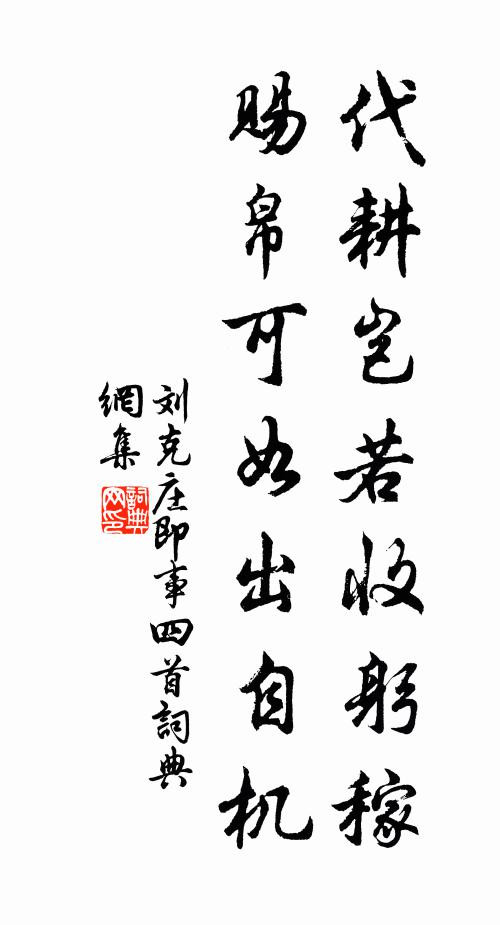 代耕岂若收躬稼
赐帛可如出自机
刘克庄即事四首詞典
網集
詞典网印